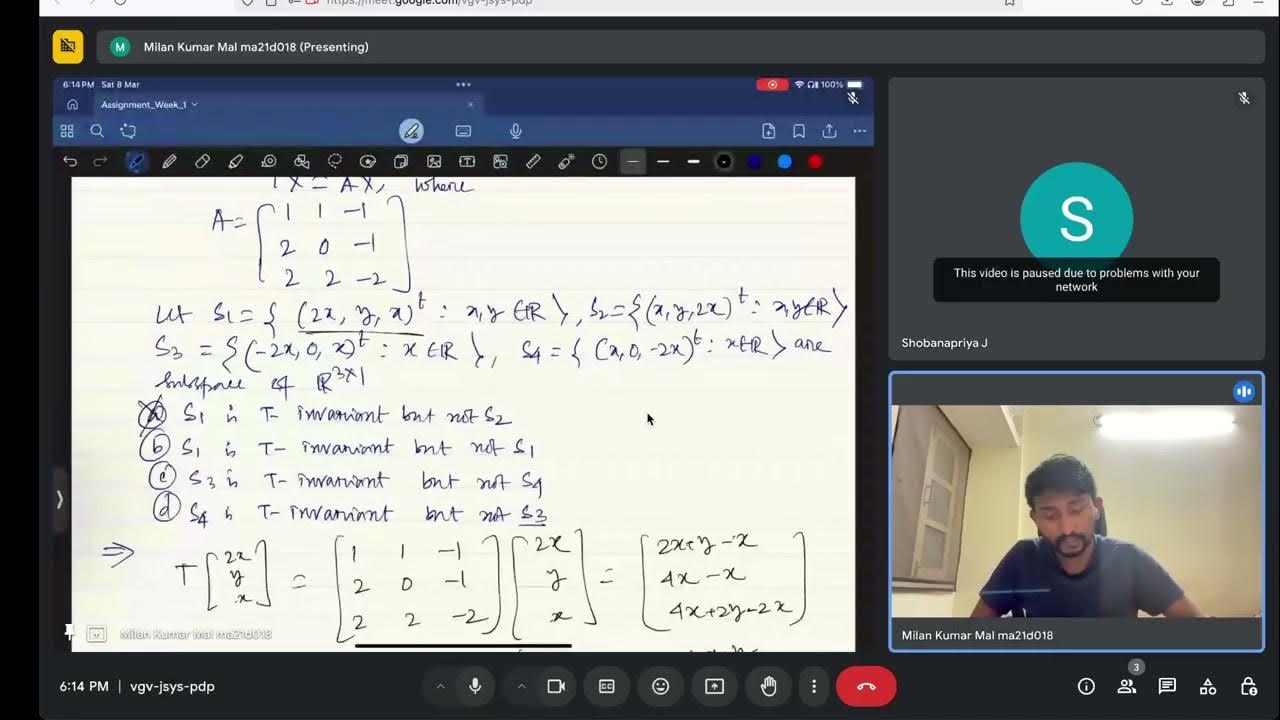 https://meet.google.com/vgv-jsys-pdp
M Milan Kumar Mal ma21d018 (Presenting)
6:14 PM Sat 8 Mar
100%
Assignment_Week_1
TX = AX, where
A = [ 1 1 -1
2 0 -1
2 2 -2 ]
Let S1 = { (2x, y, x)^t : x, y ∈ ℝ }, S2 = { (x, y, 2x)^t : x, y ∈ ℝ }
S3 = { (-2x, 0, x)^t : x ∈ ℝ }, S4 = { (x, 0, -2x)^t : x ∈ ℝ } are
subspace of ℝ^3×1
(a) S1 is T- invariant but not S2
(b) S1 is T- invariant but not S1
(c) S3 is T- invariant but not S4
(d) S4 is T- invariant but not S3
⇒ T [ 2x y x ] = [ 1 1 -1 ; 2 0 -1 ; 2 2 -2 ] [ 2x y x ] = [ 2x+y-x ; 4x-x ; 4x+2y-2x ]
Milan Kumar Mal ma21d018
S
This video is paused due to problems with your
network
Shobanapriya J
Milan Kumar Mal ma21d018
6:14 PM | vgv-jsys-pdp
3